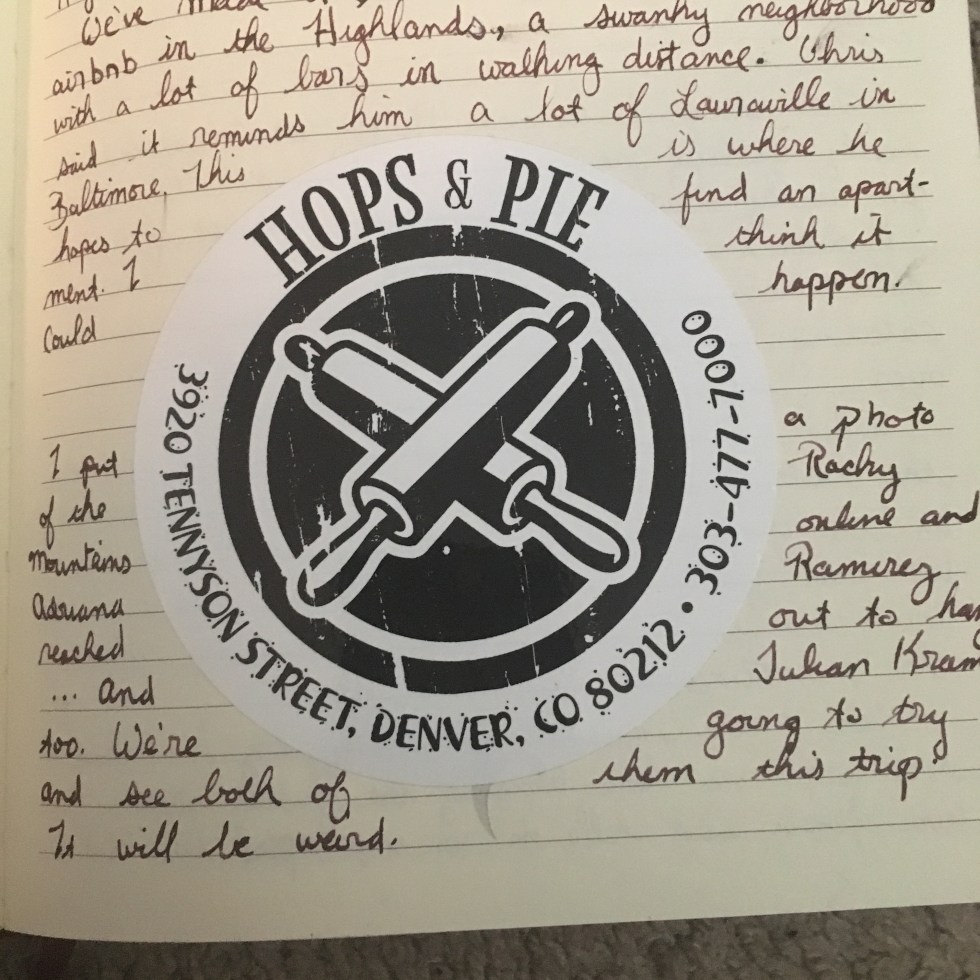 We've made
airbnb in the Highlands, a swanky neighborhood
with a lot of bars in walking distance. Chris
said it reminds him a lot of Lauraville in
Baltimore. This is where he
hopes to find an apart-
ment. I think it
Could happen.
I put a photo
of the Rocky
Mountains online and
Adriana Ramirez
reached out to han
... and Julian Kram
too. We're going to try
and see both of them this trip.
It will be weird.
HOPS & PIE
3920 TENNYSON STREET, DENVER, CO 80212 • 303-477-7000